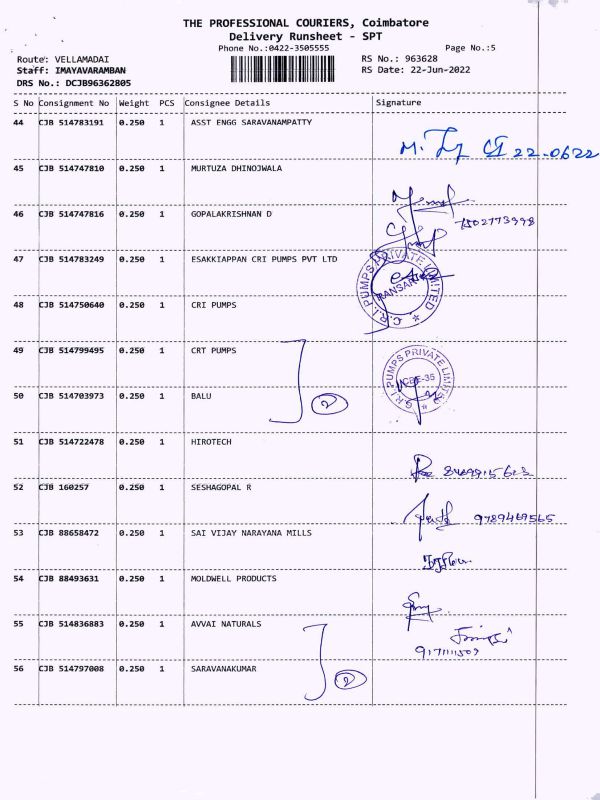 THE PROFESSIONAL COURIERS, Coimbatore
Delivery Runsheet - SPT
Phone No.:0422-3505555 Page No.:5
Route: VELLAMADAI RS No.: 963628
Staff: IMAYAVARAMBAN RS Date: 22-Jun-2022
DRS No.: DCJB96362805
S No Consignment No Weight PCS Consignee Details Signature
44 CJB 514783191 0.250 1 ASST ENGG SARAVANAMPATTY
22-0622
45 CJB 514747810 0.250 1 MURTUZA DHINOJWALA
46 CJB 514747816 0.250 1 GOPALAKRISHNAN D
7502773998
47 CJB 514783249 0.250 1 ESAKKIAPPAN CRI PUMPS PVT LTD
C.R.I. PUMPS PRIVATE LIMITED
48 CJB 514750640 0.250 1 CRI PUMPS
49 CJB 514799495 0.250 1 CRT PUMPS
C.R.I. PUMPS PRIVATE LIMITED
CBE-35
50 CJB 514703973 0.250 1 BALU
2
51 CJB 514722478 0.250 1 HIROTECH
52 CJB 160257 0.250 1 SESHAGOPAL R
9789469565
53 CJB 88658472 0.250 1 SAI VIJAY NARAYANA MILLS
54 CJB 88493631 0.250 1 MOLDWELL PRODUCTS
55 CJB 514836883 0.250 1 AVVAI NATURALS
56 CJB 514797008 0.250 1 SARAVANAKUMAR
2